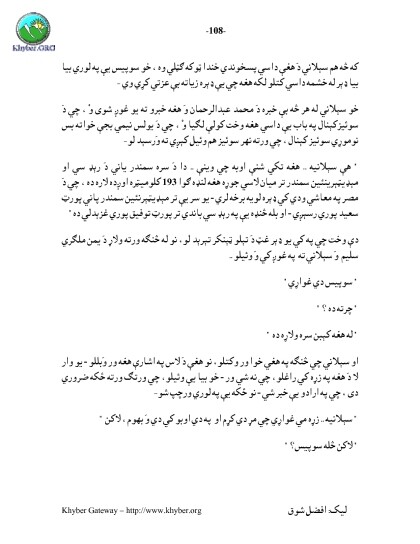 -108-
Khyber.ORG
که څه هم سپلانيې دَ هغې داسې پسخوندي خندا ټوکه ګڼلې وه ، خو سوپيس يې په لوري بيا
بيا ډېر له خشمه داسې کتلو لکه هغه چې يې ډېره زياته بې عزتي کړي وي -
خو سپلاني له هر څه بې خبره دَ محمد عبدالرحمان وَ هغه خبرو ته يو غوږ شوی وُ ، چې دَ
سوئيز کېنال په باب يې داسې هغه وخت کولې لګيا وُ ، چې دَ يولس نيمې بجې خوا ته بس
نوموړي سوئيز کېنال ، چې ورته نهر سوئيز هم وئيل کېږي ته وَرسېد لو -
" هې سپلانيه .. هغه تکې شنې اوبه چې وينې .. دا دَ سره سمندر ياني دَ رېډ سي او
مېډيټېرينئين سمندر تر ميان لاسې جوړه هغه لنډه ګوا 193 کلوميټره اوږده لاره ده ، چې دَ
مصر په معاشي ودې کې ډېره لويه برخه لري - يو سر يې تر مېډيټېرنئين سمندر پاتې پورټ
سعيد پورې رسېږي - او بله څنډه يې په رېډ سي باندې تر پورټ توفيق پورې غزېدلې ده "
دې وخت چې په کې يو ډېر غټ دَ تېلو ټېنکر تېرېد لو ، نو له څنګه ورته ولاړ دَ يمن ملګري
سليم وَ سپلاني ته په غوږ کې وَئيلو -
" سوپيس دې غواړي "
" چرته ده ؟ "
" له هغه کېبن سره ولاړه ده "
او سپلاني چې څنګه په هغې خوا ور وکتلو ، نو هغې دَ لاس په اشارې هغه ور وَبللو - يو وار
لا دَ هغه په زړه کې راغلو ، چې نه شي ور - خو بيا يې وئيلو ، چې ورتګ ورته ځکه ضروري
دی ، چې په ارادو يې خبر شي - نو ځکه يې په لوري ورچپ شو -
" سپلانيه.. زړه مې غواړي چې مړ دې کړم او په دې اوبو کې دې وَ بهوم ، لاکن "
" لاکن څله سوپيس؟ "
ليک: افضل شوق
Khyber Gateway – http://www.khyber.org